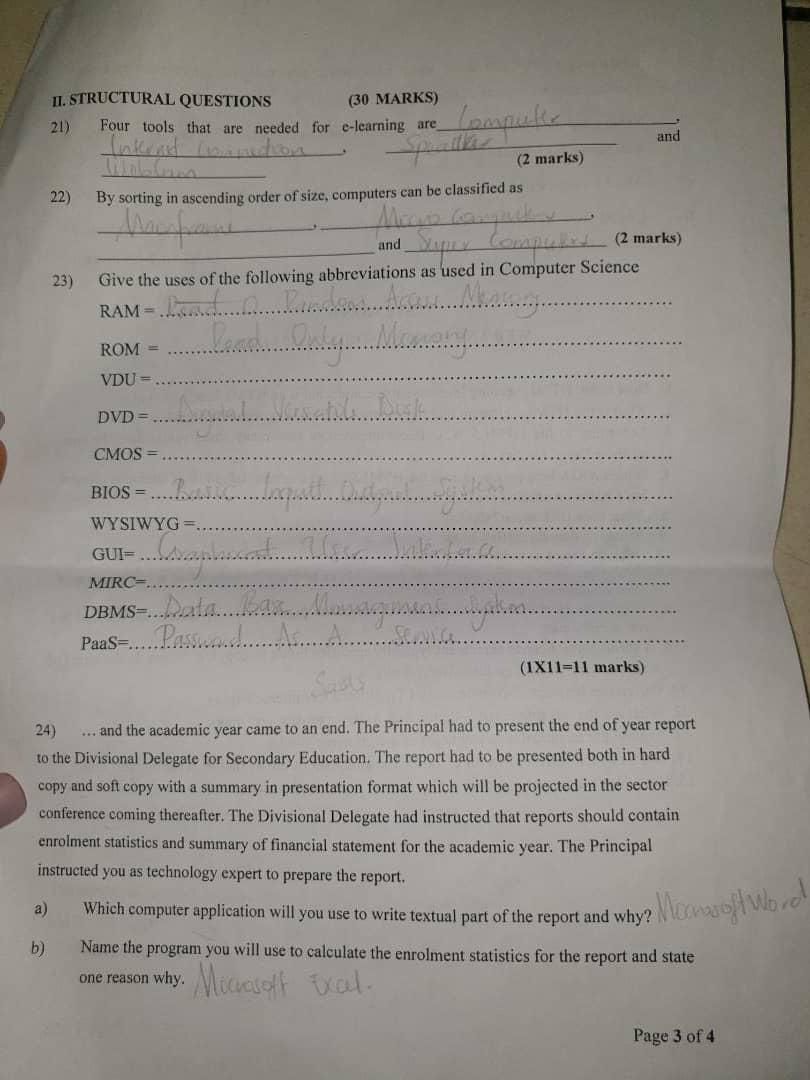 II. STRUCTURAL QUESTIONS (30 MARKS)
21) Four tools that are needed for e-learning are Computer,
Internet Connection, Speaker and
(2 marks)
22) By sorting in ascending order of size, computers can be classified as
, Micro Computers,
and Super Computers (2 marks)
23) Give the uses of the following abbreviations as used in Computer Science
RAM = Read O Random Access Memory
ROM = Read Only Memory
VDU =
DVD = Digital Versatile Disk
CMOS =
BIOS = Basic Inputt Output System
WYSIWYG =
GUI= Graphical User Interface
MIRC=
DBMS= Data Base Management System
PaaS= Password As A Service
(1X11=11 marks)
Saas
24) ... and the academic year came to an end. The Principal had to present the end of year report
to the Divisional Delegate for Secondary Education. The report had to be presented both in hard
copy and soft copy with a summary in presentation format which will be projected in the sector
conference coming thereafter. The Divisional Delegate had instructed that reports should contain
enrolment statistics and summary of financial statement for the academic year. The Principal
instructed you as technology expert to prepare the report.
a) Which computer application will you use to write textual part of the report and why? Microsoft Word
b) Name the program you will use to calculate the enrolment statistics for the report and state
one reason why. Microsoft Excel.
Page 3 of 4